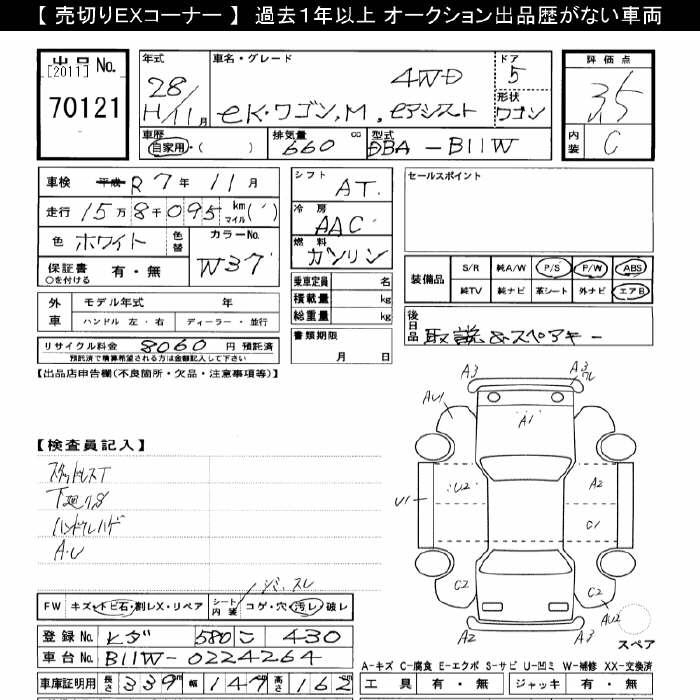 【 売切りEXコーナー 】 過去１年以上 オークション出品歴がない車両
出品 No.
[2011]
70121
年式
28/
H/11月
車名・グレード
4WD
eK・ワゴン, M, eアシスト
ドア
5
形状
ワゴン
評価点
3.5
内装
C
車歴
自家用・( )
排気量 cc
660
型式
DBA - B11W
車検 平成 R7年 11月
走行 15万8千095 km マイル( )
色 ホワイト 色替
カラーNo.
W37
保証書 有・無
○を付ける
シフト
AT
冷房
AAC
燃料
ガソリン
乗車定員 名
積載量 kg
総重量 kg
書類期限
月 日
セールスポイント
装備品
S/R 純A/W P/S P/W ABS
純TV 純ナビ 革シート 外ナビ エアB
後日品 取説&スペアキー
外車 モデル年式 年
ハンドル 左・右 ディーラー・並行
リサイクル料金 8060 円 預託済
預託済で積算希望される方は金額記入して下さい
【出品店申告欄(不良箇所・欠品・注意事項等)】
【検査員記入】
スタッドレスT
下廻りS
ハンドルハゲ
A・U
シミ・スレ
FW キズ・トビ石・割レX・リペア
シート内装 コゲ・穴・汚レ・破レ
登録No. 580 こ 430
車台No. B11W-0224264
車庫証明用 長さ 339 cm 幅 147 cm 高さ 162 cm
A3
A3
AU1
A1
U2
A2
U1
C1
C2
C2
AU2
A2
A3
スペア
A-キズ C-腐食 E-エクボ S-サビ U-凹ミ W-補修 XX-交換済
工具 有・無 ジャッキ 有・無